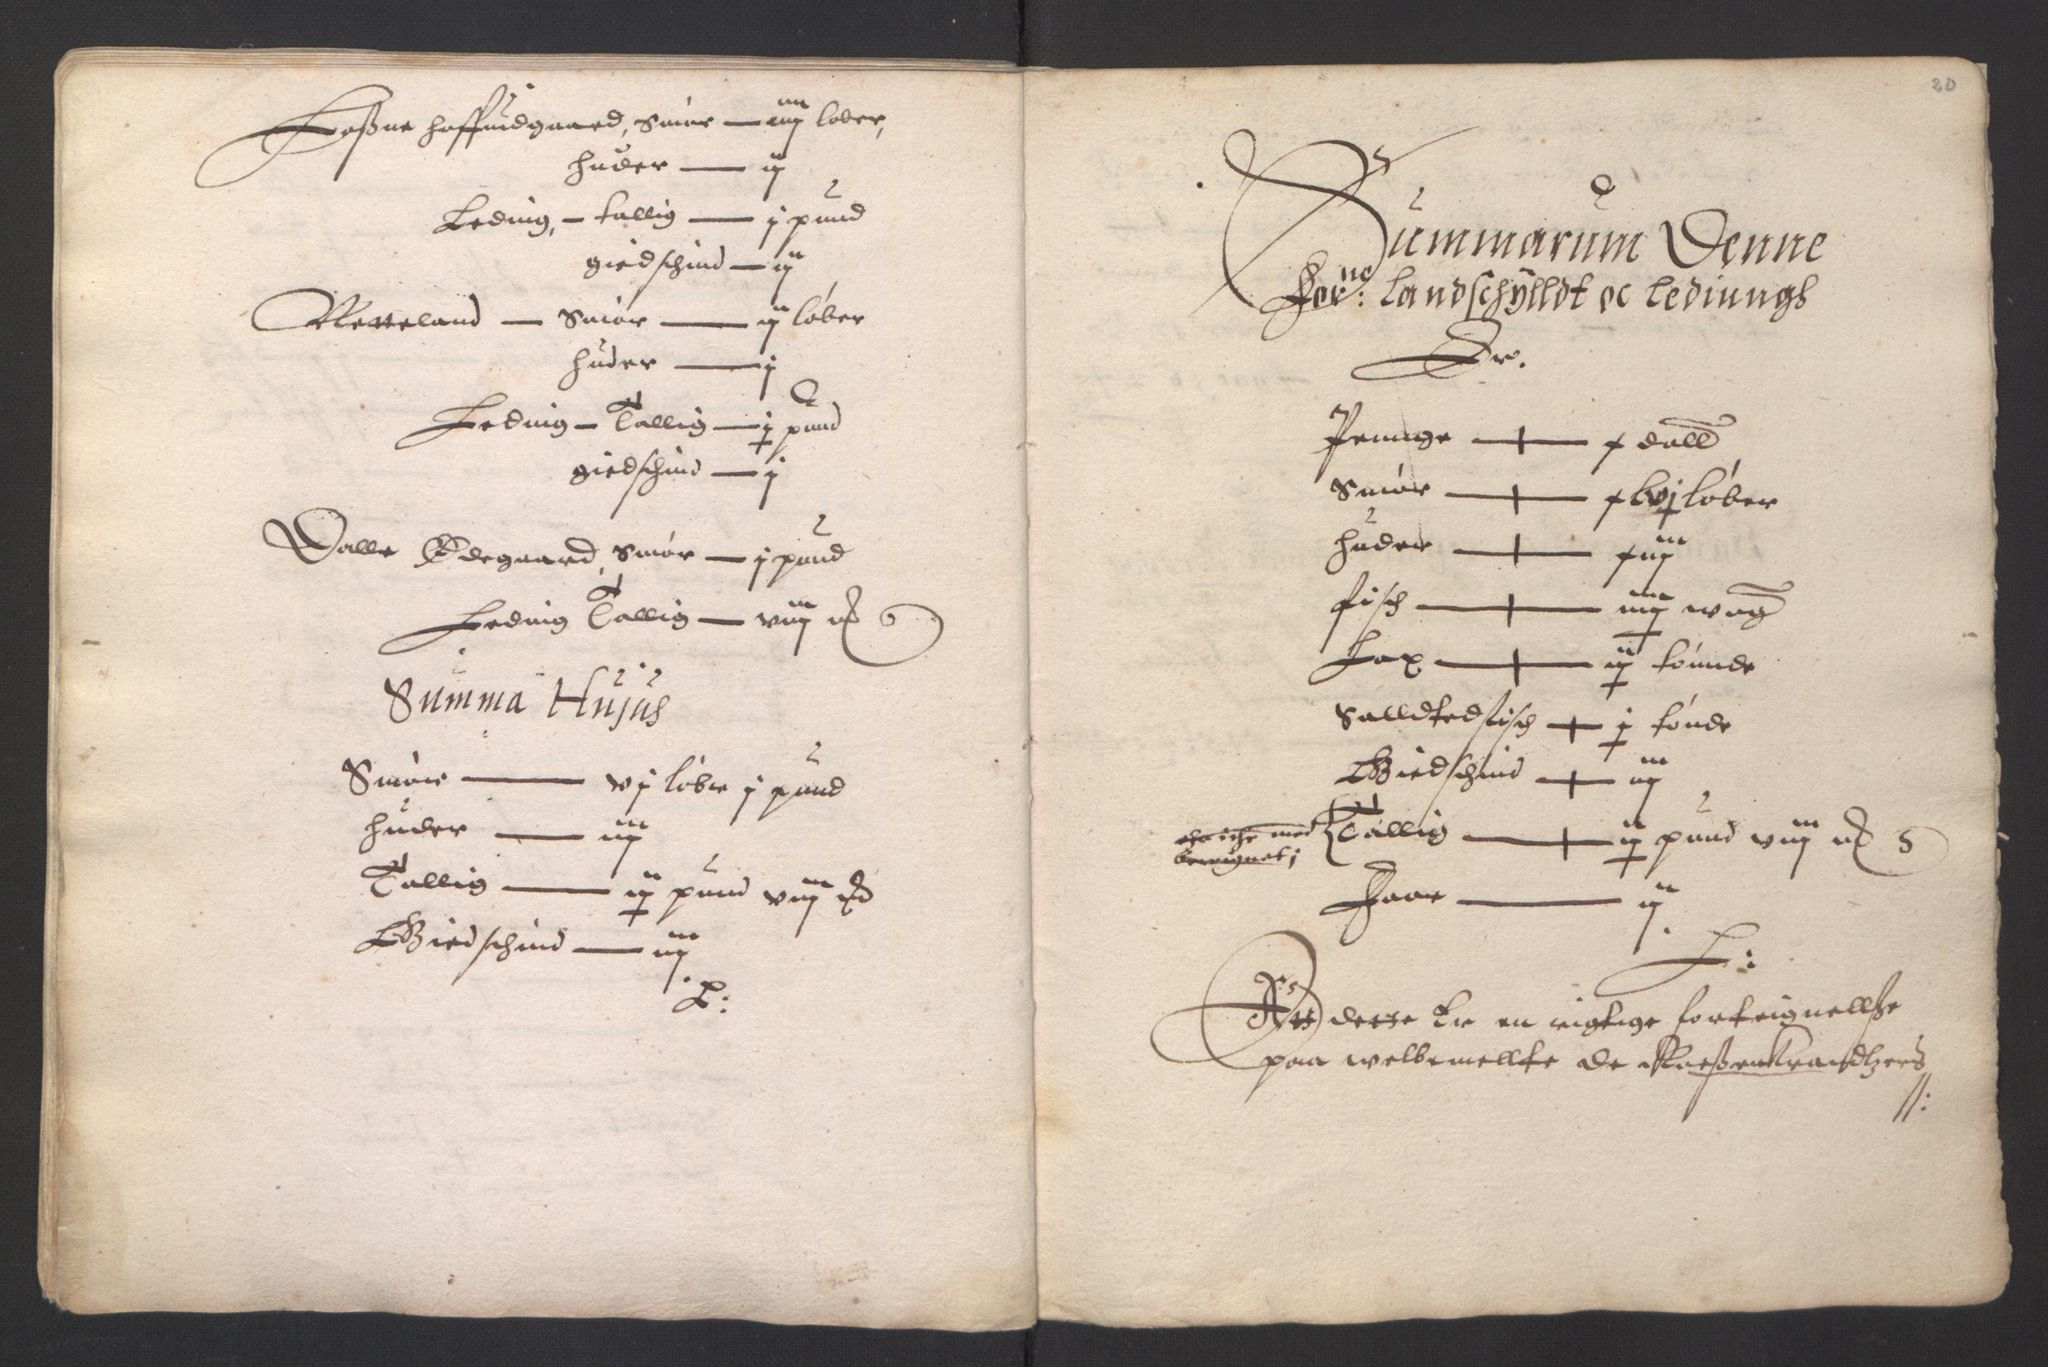 Loßne hoffuidgaard, Smør — iiij løber,
huder — ij
Leding, – tallig — j pund
giedschind — ij
Retteland — Smør — ij løber
huder — j
Leding – Tallig — j pund
giedschind — j
Dalle Ødegaard, Smør — j pund
Leding Tallig — viij
Summa Hujus
Smør — vj løber j pund
huder — iij
Tallig — ij pund viij
Giedschind — iij
20
Summarum Denne
For:ne landschylldt oc lediungs
Er.
Penninge — x dall
Smør — xlvj løber
huder — xiij
fisch — iiij wog
Lax — ij tønnde
Salldtedfisch — j tønde
Giedschind — iij
Tallig — ij pund viij
Faar — ij
Att dette Er en rigtige forteignellße
paa welbemellte